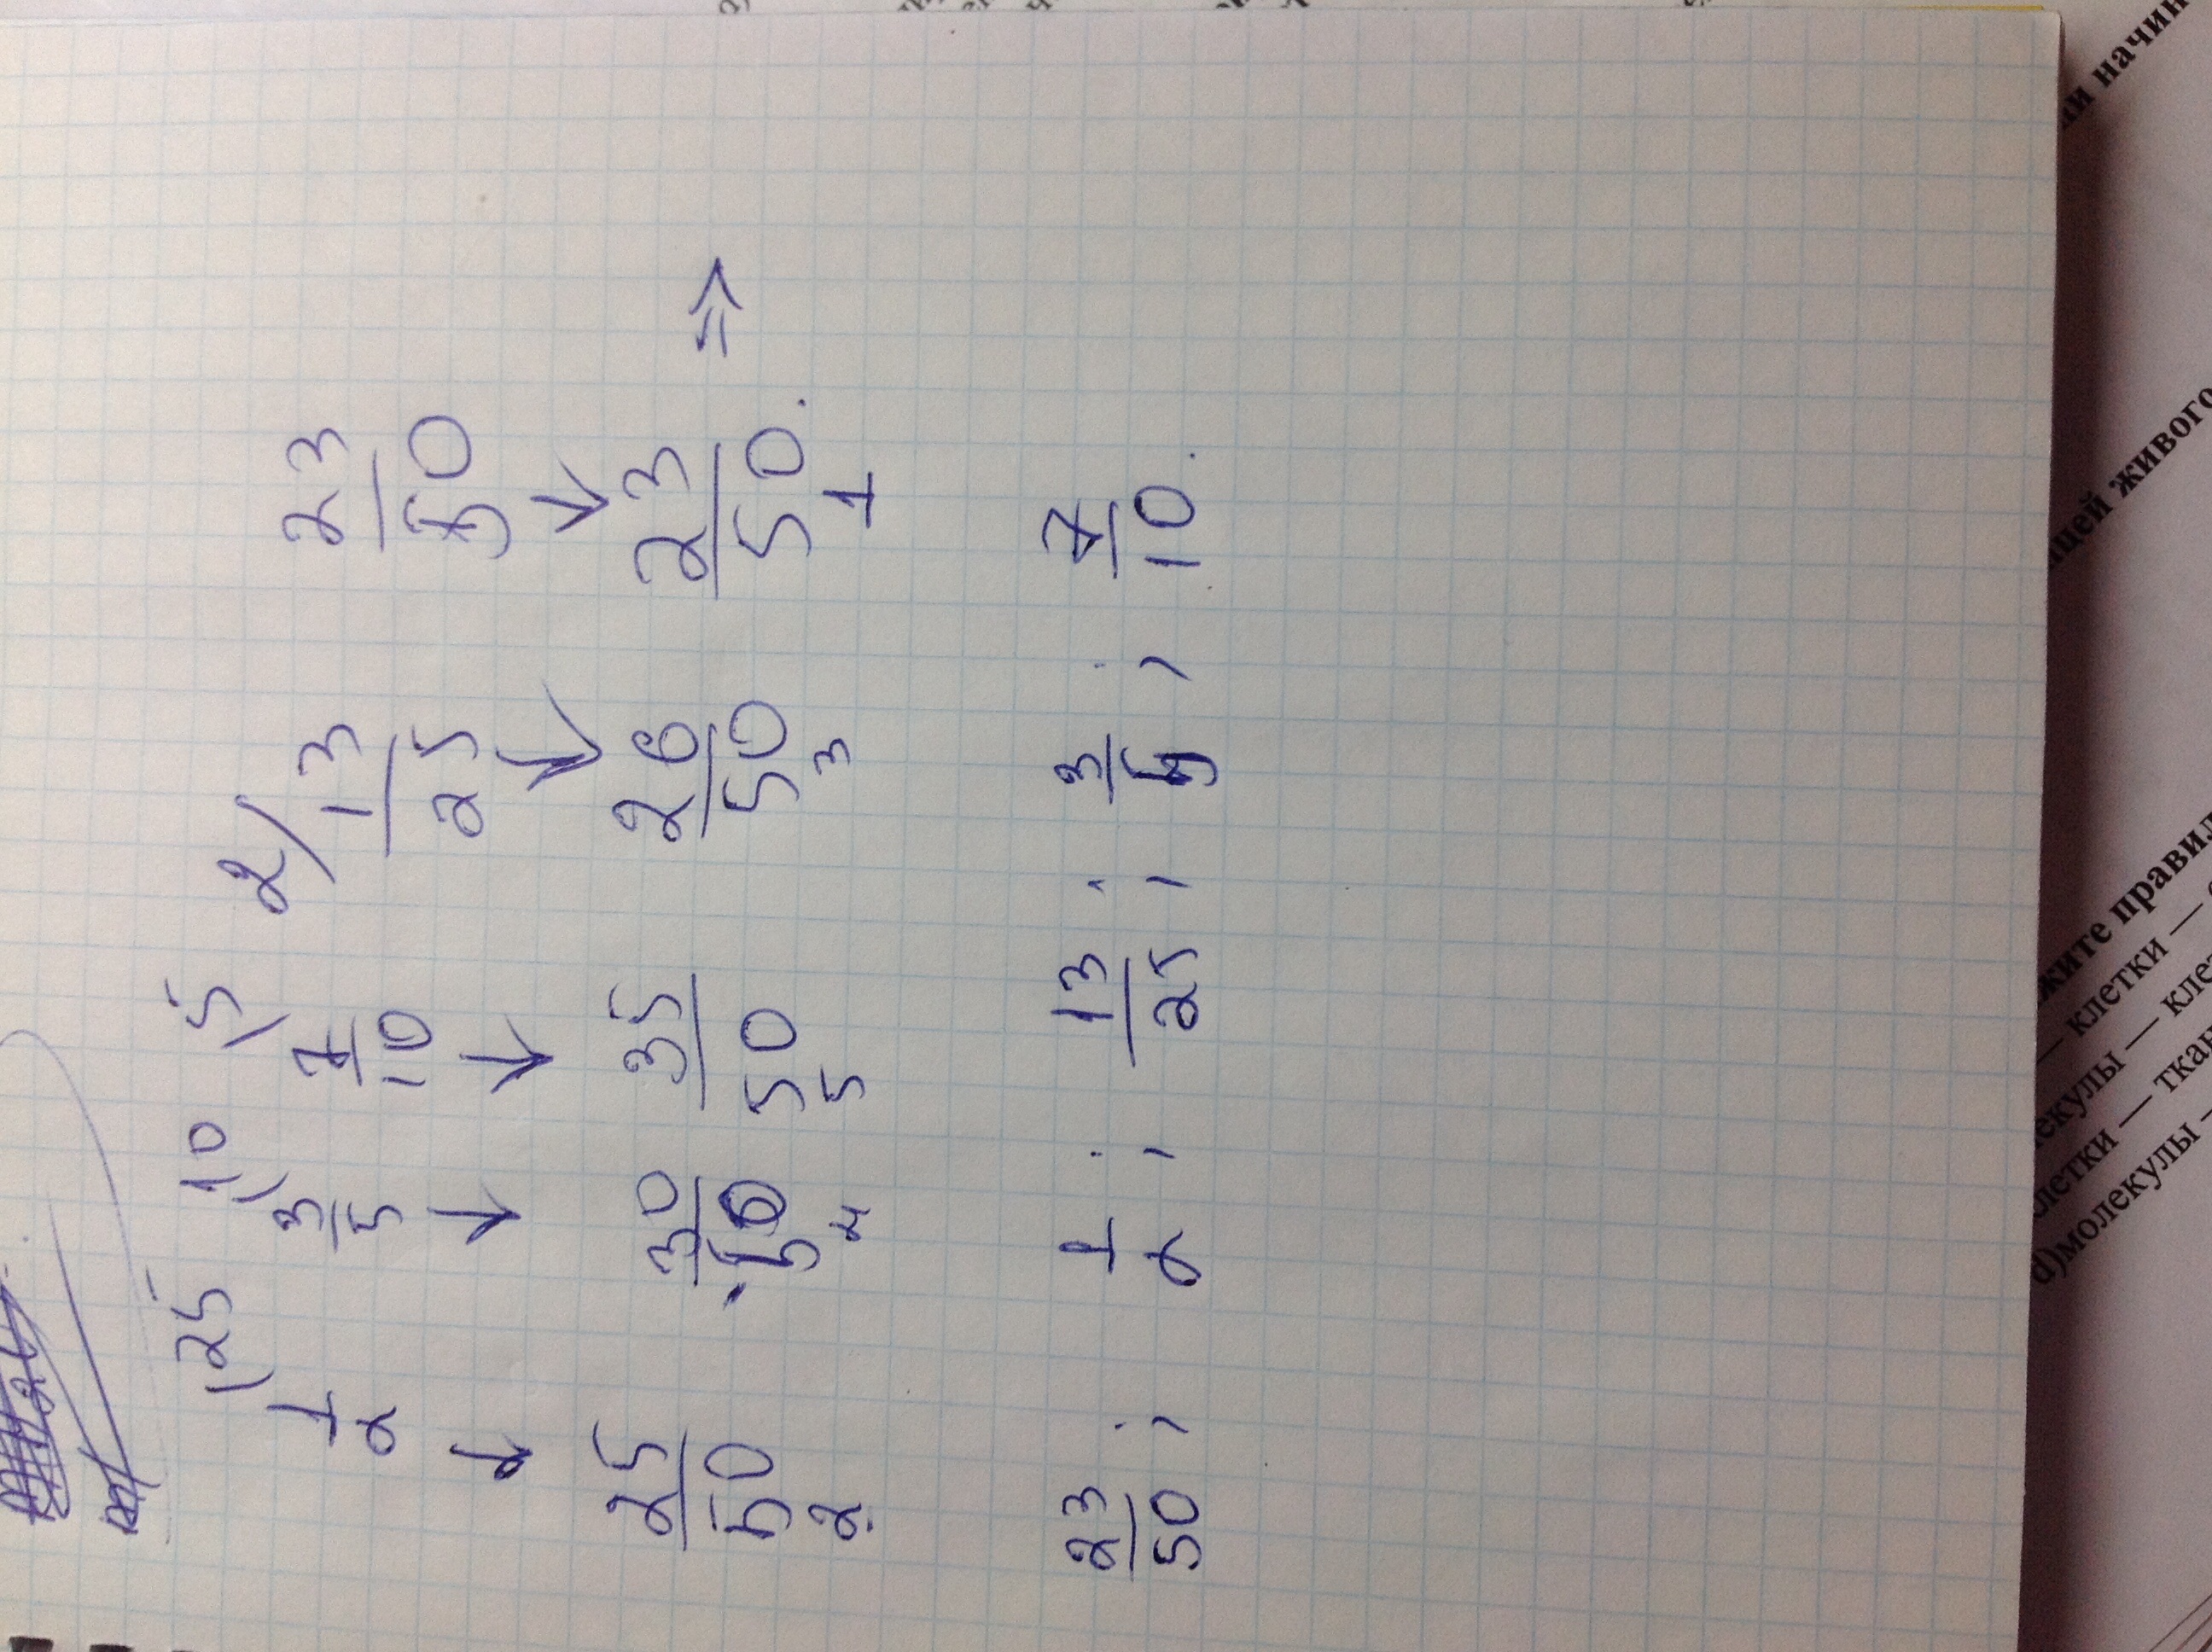 (25 (10 (5 2/
1/2 3/5 7/10 13/25 23/50
↓ ↓ ↓ ↓ ↓
25/50 30/50 35/50 26/50 23/50. ⇒
2. 4 5 3 1
23/50 ; 1/2 ; 13/25 ; 3/5 ; 7/10.
ми начин
щей живого
жите правил
— клетки —
екулы — клет
летки — ткан
d)молекулы –